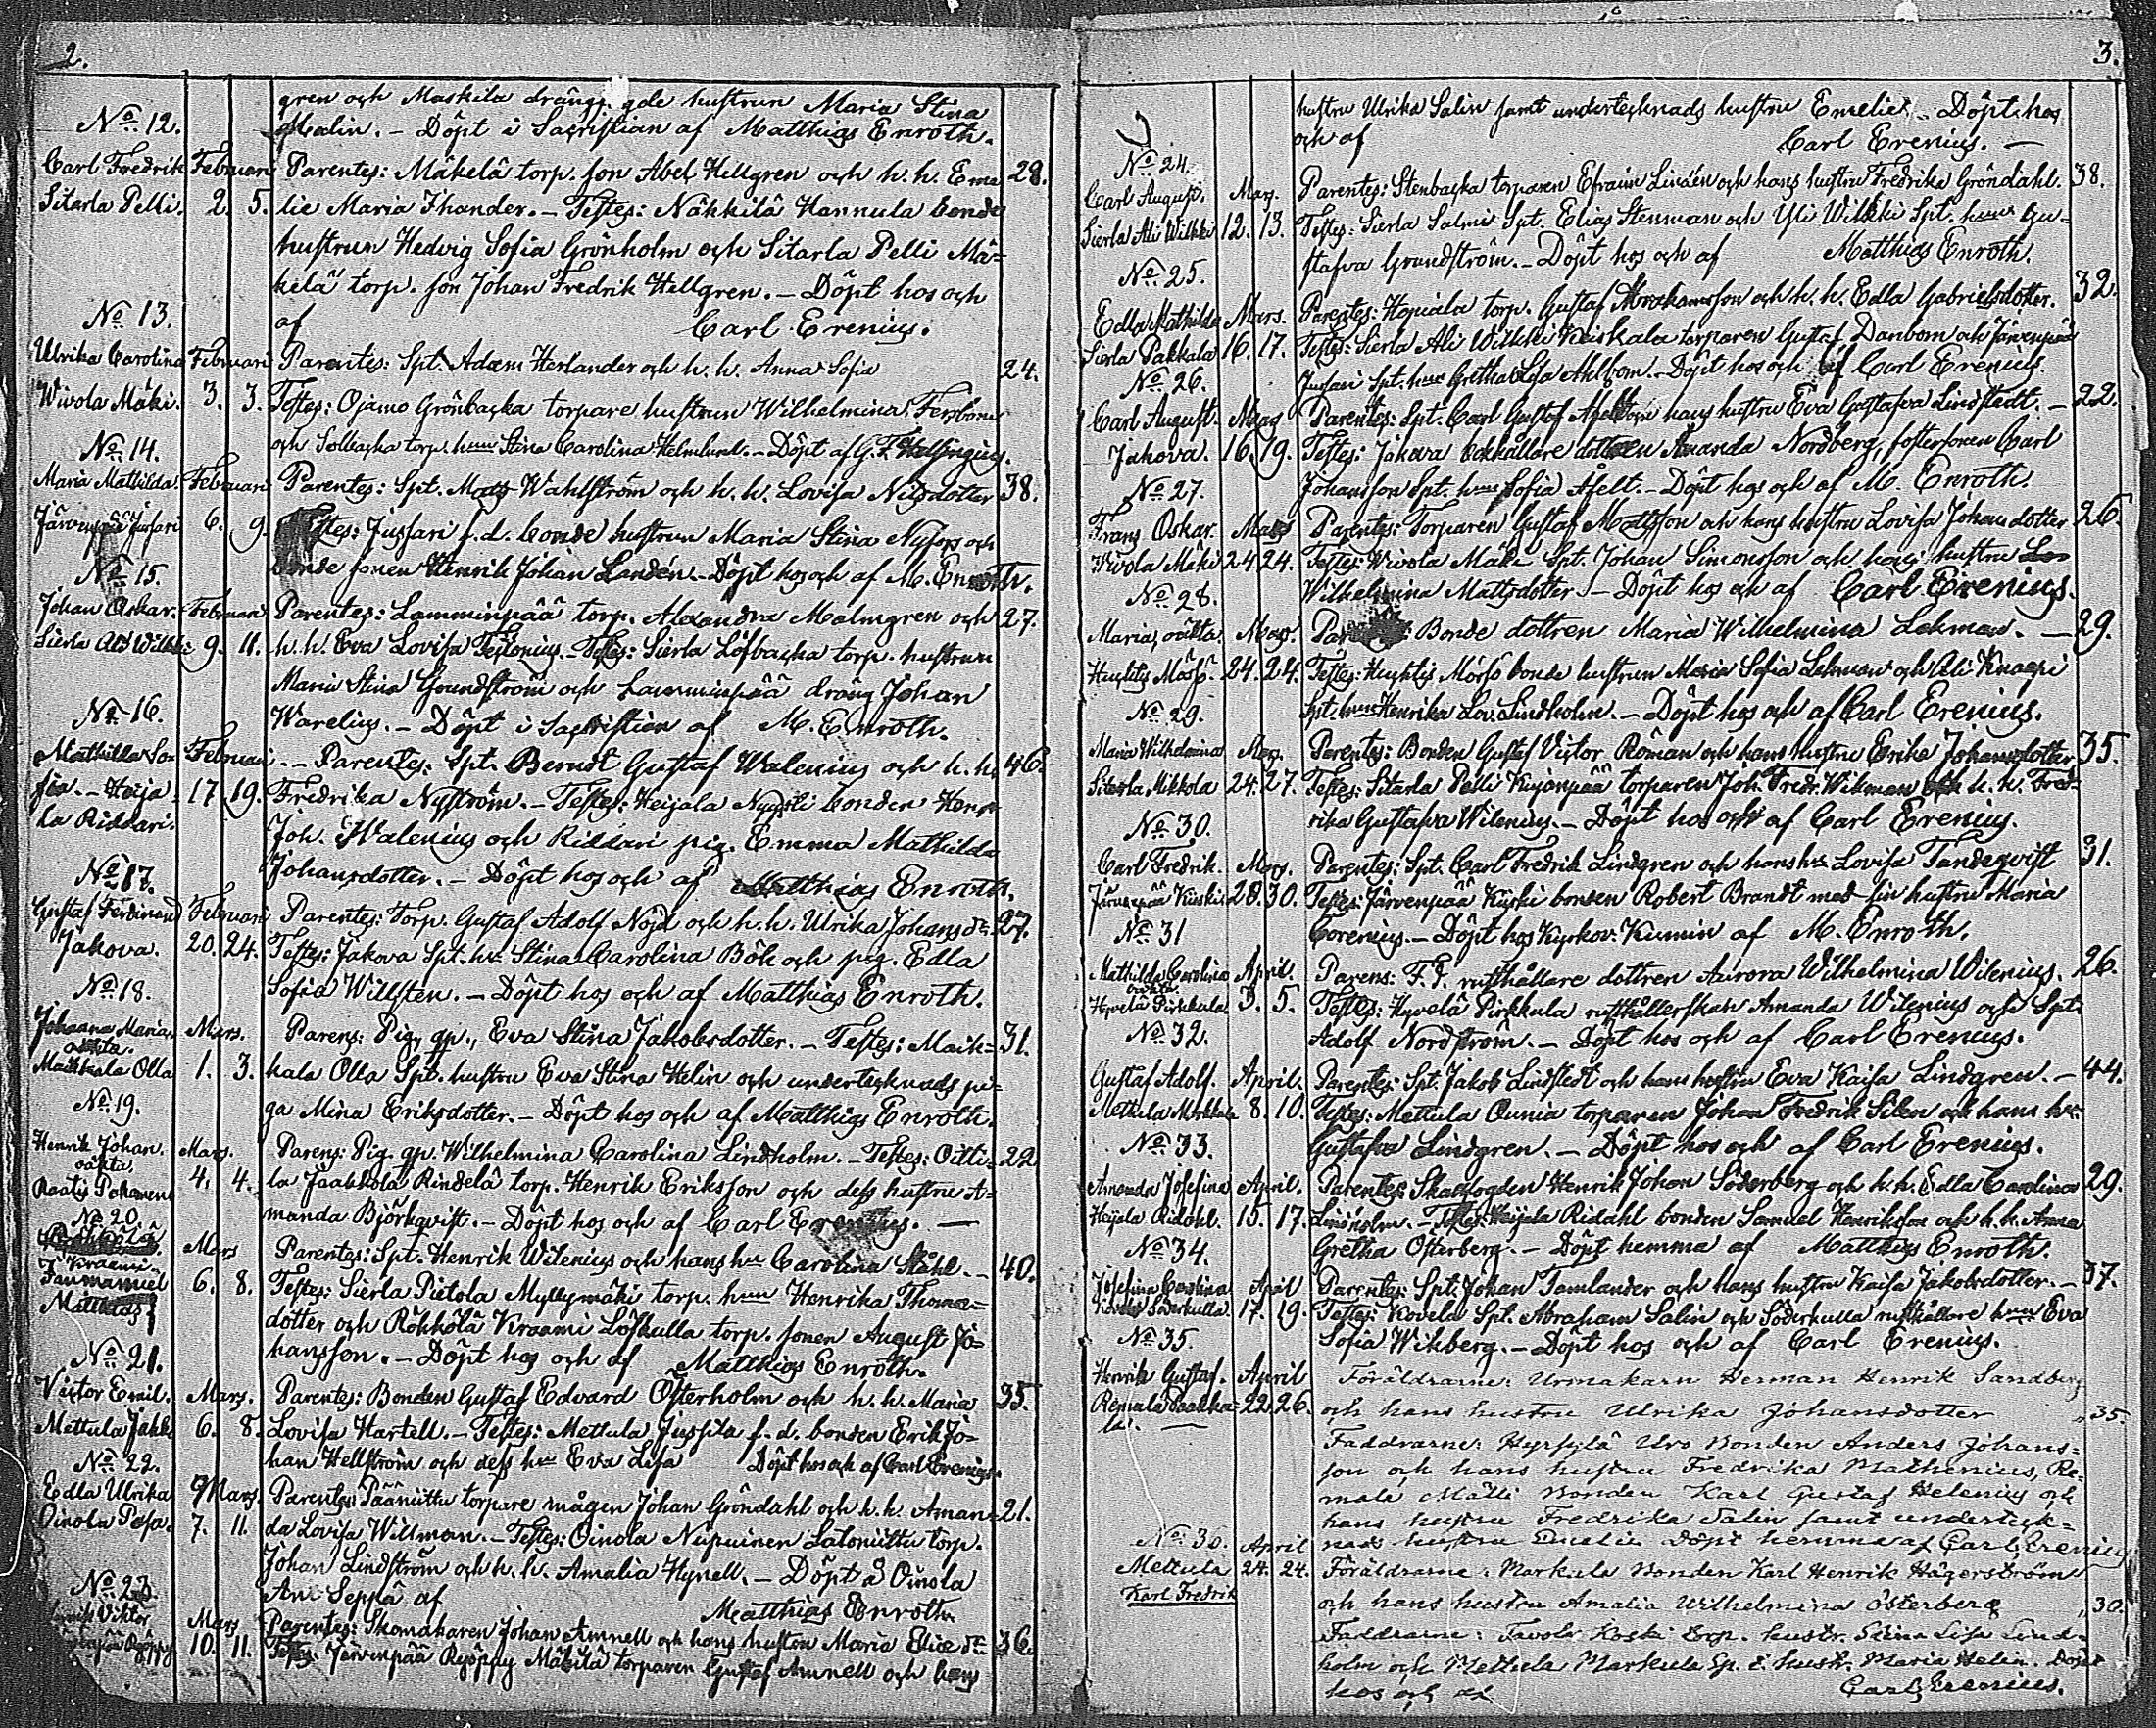 2.
gren och Maskila drängs gde hustrun Maria Stina
Malin. – Döpt i Sacristian af Matthias Enroth.
No. 12.
Carl Fredrik Februari Parentes: Mäkelä torp. son Abel Hellgren och h. h. Eme 28.
Sitarla Pelli. 2. 5. lie Maria Ihander. – Testes: Näkkilä Hannula bonde
hustrun Hedvig Sofia Grönholm och Sitarla Pelli Mä=
kelä torp. son Johan Fredrik Hellgren. – Döpt hos och
af Carl Erenius.
No. 13.
Ulrika Carolina Februari Parentes: Spt. Adam Herlander och h. h. Anna Sofia 24.
Wivola Mäki. 3. 3. Testes: Ojamo Grönbacka torpare hustrun Wilhelmina
och Solbacka torp. hun Stina Carolina Helmlund. – Döpt af G. F. Helsingius.
No. 14.
Maria Mathilda. Februari Parentes: Spt. Mats Wahlström och h. h. Lovisa Nilsdotter 38.
Järvenpää Jussari 6. 9. Testes: Jussari f. d. bonde hustrun Maria Stina Nyfors och
bonde sonen Henrik Johan Landén. – Döpt hos och af M. Enroth.
No. 15.
Johan Oskar. Februari Parentes: Lamminpää torp. Alexandra Malmgren och 27.
Sierla Ali Wilkki 9. 11. h. h. Eva Lovisa – Testes: Sierla Löfbacka torp. hustrun
Maria Stina Grundström och Lamminpää dräng Johan
Warelius. – Döpt i Sacristian af M. Enroth.
No. 16.
Mathilda So- Februari. – Parentes: Spt. Berndt Gustaf Walenius och h. h. 46.
fia. – Heija- 17 19. Fredrika Nyström. – Testes: Heijala Nyysti bonden Henr.
la Riddari.
Joh. Walenius och Riddari pig. Emma Mathilda
Johansdotter. – Döpt hos och af Matthias Enroth.
No. 17.
Gustaf Ferdinand Februari Parentes: Torp. Gustaf Adolf Nöjd och h. h. Ulrika Johansdr. 27.
Jakova. 20. 24. Testes: Jakova Spt. hu. Stina Carolina Bök och pig. Edla
Sofia Willsten. – Döpt hos och af Matthias Enroth.
No. 18.
Johanna Maria, Mars. Parens: Pig. gp., Eva Stina Jakobsdotter. – Testes: Maik= 31.
oäkta.
Maikkala Olla 1. 3. kala Olla Spt. hustru Eva Stina Helin och undertecknads pi-
ga Mina Eriksdotter. – Döpt hos och af Matthias Enroth.
No. 19.
Henrik Johan. Mars. Parens: Pig. gp. Wilhelmina Carolina Lindholm. – Testes: Oitti= 22
oäkta.
Raatis Pohanens 4. 4. la Jaakkola Rindelä torp. Henrik Eriksson och dess hustru A-
manda Björkqvist. – Döpt hos och af Carl Erenius. –
No. 20
Kraami Mars Parentes: Spt. Henrik Wilenius och hans hu Carolina Ståhl. – 40.
Immanuel 6. 8. Testes: Sierla Pietola Myllymäki torp. hun Henrika Thoma=
Matthias
dotter och Rökkölä Kraami Löfkulla torp. sonen August Jo-
hansson. – Döpt hos och af Matthias Enroth.
No. 21.
Victor Emil. Mars. Parentes: Bonden Gustaf Edvard Österholm och h. h. Maria 35.
Mettula Jakki 6. 8. Lovisa Hartell. – Testes: Mettula Jussila f. d. bonden Erik Jo-
han Hellström och dess hu Eva Lisa Döpt hos och af Carl Erenius.
No. 22.
Edla Ulrika Mars. Parentes: Pääniittu torpare mågen Johan Gröndahl och h. h. Aman= 21.
Oinola Pasa. 7. 11. da Lovisa Willman. – Testes: Oinola Niipuinen Latoniittu torp.
Johan Lindström och h. h. Amalia Hynell. – Döpt å Oinola
Ani Seppä af Matthias Enroth.
No. 23.
Viktor Mars. Parentes: Skomakaren Johan Amnell och hans hustru Maria Elice dr. 36.
10. 11. Testes: Järvenpää Reöppy Mäkilä torparen Gustaf Amnell och hans
3.
hustru Ulrika Salin samt undertecknads hustru Emelie. – Döpt hos
och af Carl Erenius. –
No. 24.
Carl August. Mars. Parentes: Stenbacka torparen Efraim Lindén och hans hustru Fredrika Gröndahl. 38.
Sierla Ali Wilkki 12. 13. Testes: Sierla Salmi Spt. Elias Stenman och Yli Wilkki Spt. hun Gu=
stafva Grundström. – Döpt hos och af Matthias Enroth.
No. 25.
Edla Mathilda Mars. Parentes: Hopiala torp. Gustaf Abrahamsson och h. h. Edla Gabrielsdotter. 32.
Sierla Pakkala 16. 17. Testes: Sierla Ali Wilkki Keiskala torparen Gustaf Danbom och Järvenpää
Jussari Spt. hun Gretha Lisa Ahlbom. – Döpt hos och af Carl Erenius.
No. 26.
Carl August. Mars Parentes: Spt. Carl Gustaf Afelt och hans hustru Eva Gustafva Lindstedt. – 22.
Jakova. 16. 19. Testes: Jakova bokhållare dottren Amanda Nordberg, fostersonen Carl
Johansson Spt. hun Sofia Afelt. – Döpt hos och af M. Enroth.
No. 27.
Frans Oskar. Mars Parentes: Torparen Gustaf Mattsson och hans hustru Lovisa Johansdotter 26.
Wivola Mäki 24 24. Testes: Wivola Mäki Spt. Johan Simonsson och hans hustru
Wilhelmina Mattsdotter. – Döpt hos och af Carl Erenius.
No. 28.
Maria, oäkta. Mars. Parens: Bonde dottren Maria Wilhelmina Lekman. – 29.
Huhtis Mörsö. 24. 24. Testes: Huhtis Mörsö bonde hustrun Maria Sofia Lekman och Ali Knaapi
Spt. hun Henrika Lov. Lindholm. – Döpt hos och af Carl Erenius.
No. 29.
Maria Wilhelmina Mars. Parentes: Bonden Gustaf Victor Roman och hans hustru Erika Johansdotter 35.
Sitarla Mikkola 24. 27. Testes: Sitarla Pelli Kujanpää torparen Joh. Fredr. Wikman och h. h. Fred-
rika Gustafva Wilenius. – Döpt hos och af Carl Erenius.
No. 30.
Carl Fredrik. Mars. Parentes: Spt. Carl Fredrik Lindgren och hans hu Lovisa Tandeqvist 31.
Järvenpää Kuski 28. 30. Testes: Järvenpää Kuski bonden Robert Brandt med sin hustru Maria
Corenius. – Döpt hos Kyrkov. Kumin af M. Enroth.
No. 31
Mathilda Carolina April. Parens: F. d. rusthållare dottren Aurora Wilhelmina Wilenius. 26.
oäkta
Hyvelä Pirkkula. 3. 5. Testes: Hyvelä Pirkkula rusthållerskan Amanda Wilenius och Spt.
Adolf Nordström. – Döpt hos och af Carl Erenius.
No. 32.
Gustaf Adolf. April. Parentes: Spt. Jakob Lindstedt och hans hustru Eva Kaisa Lindgren. – 44.
Mettula Markkula 8. 10. Testes: Mettula Ounia torparen Johan Fredrik Silen och hans hu
Gustafva Lindgren. – Döpt hos och af Carl Erenius.
No. 33.
Amanda Josefina April. Parentes: Skalfogden Henrik Johan Söderberg och h. h. Edla Carolina 29.
Heijala Ridahl. 15. 17. Lindholm. – Testes: Heijala Ridahl bonden Samuel Henriksson och h. h. Anna
Gretha Österberg. – Döpt hemma af Matthias Enroth.
No. 34.
Josefina Carolina April Parentes: Spt. Johan Tamlander och hans hustru Kaisa Jakobsdotter. – 37.
Koivola Söderkulla. 17. 19. Testes: Kovela Spt. Abraham Salin och Söderkulla rusthållare hun Eva
Sofia Wikberg. – Döpt hos och af Carl Erenius.
No. 35.
Henrik Gustaf. April Föräldrarne: Urmakarn Herman Henrik Sandberg
Remala Paakka= 22. 26. och hans hustru Ulrika Johansdotter 35.
la. – Faddrarne: Hyrsylä Uro Bonden Anders Johans=
son och hans hustru Fredrika Mathenius, Re-
mala Mälli Bonden Karl Gustaf Helenius och
hans hustru Fredrika Salin samt underteck=
nads hustru Emelie Döpt hemma af Carl Erenius
No. 36. April
Mettula 24. 24. Föräldrarne: Markula Bonden Karl Henrik Hägerström
Karl Fredrik och hans hustru Amalia Wilhelmina Österberg 30.
Faddrarne: Tavola Koski torp. hustr. Stina Lisa Lind-
holm och Mettula Markula Sp. hustr. Maria Helin. Döpt
hos och af Carl Erenius.